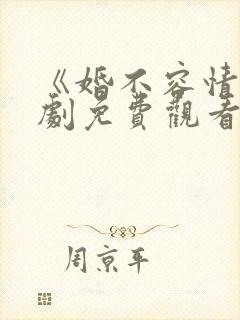 《婚不容情
劇免費觀看
周京平